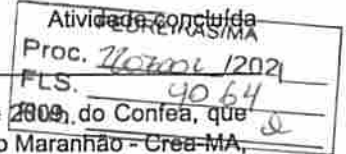 Atividade concluída
PEDREIRAS/MA
Proc. /2021
FLS. 4064
2009, do Confea, que
o Maranhão - Crea-MA,